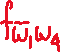 f_{\overline{w}_1 w_4}